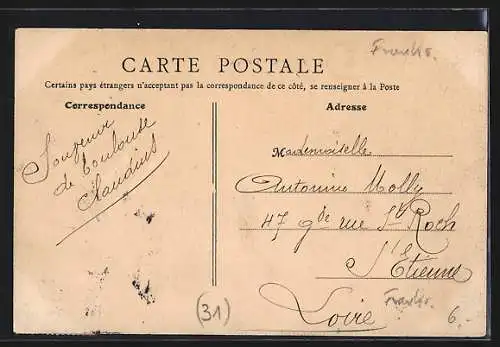 Frankr.
CARTE POSTALE
Certains pays étrangers n'acceptant pas la correspondance de ce côté, se renseigner à la Poste
Correspondance
Souvenir
de Toulouse
Claudius
Adresse
Mademoiselle
Antonine Molly
47 gde rue St Roch
St Etienne
Loire
Frankr.
(31)
6.-